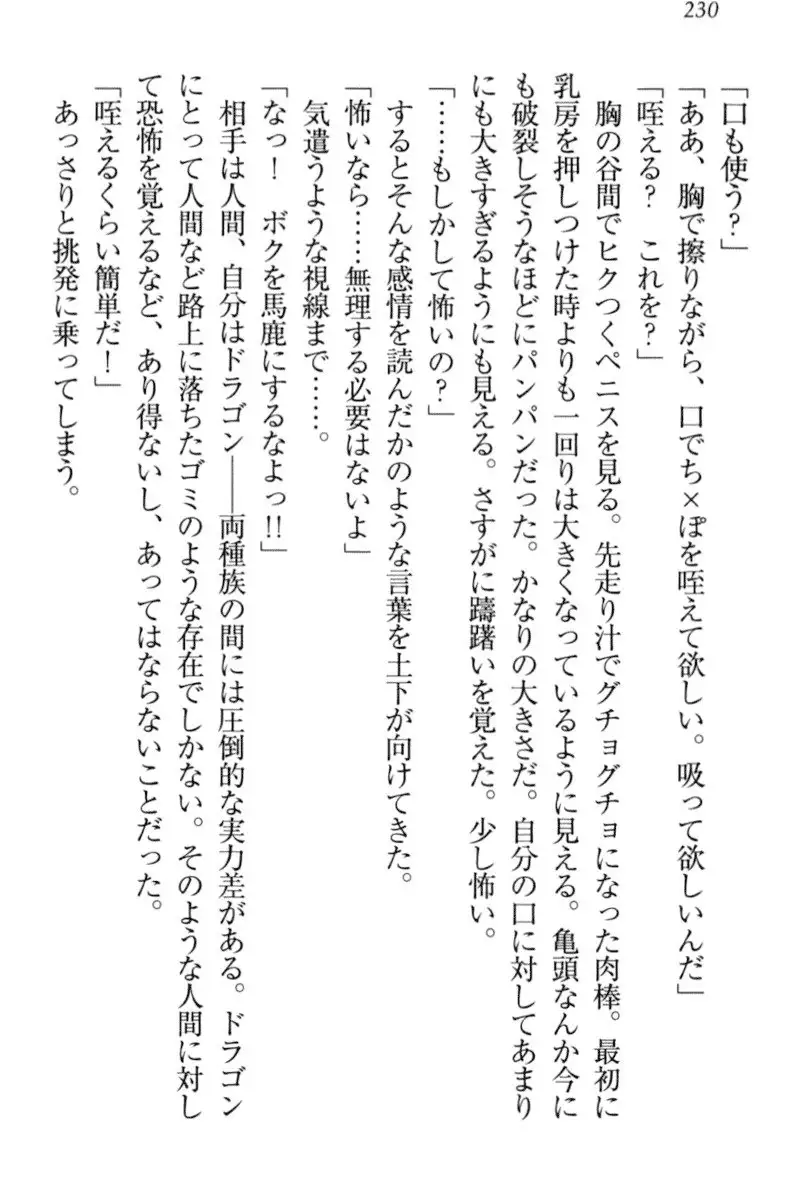 230
「口も使う？」
「ああ、胸で擦りながら、口でち×ぽを咥えて欲しい。吸って欲しいんだ」
「咥える？　これを？」
　胸の谷間でヒクつくペニスを見る。先走り汁でグチョグチョになった肉棒。最初に
乳房を押しつけた時よりも一回りは大きくなっているように見える。亀頭なんか今に
も破裂しそうなほどにパンパンだった。かなりの大きさだ。自分の口に対してあまり
にも大きすぎるようにも見える。さすがに躊躇いを覚えた。少し怖い。
「……もしかして怖いの？」
　するとそんな感情を読んだかのような言葉を土下が向けてきた。
「怖いなら……無理する必要はないよ」
　気遣うような視線まで……。
「なっ！　ボクを馬鹿にするなよっ!!」
　相手は人間、自分はドラゴン――両種族の間には圧倒的な実力差がある。ドラゴン
にとって人間など路上に落ちたゴミのような存在でしかない。そのような人間に対し
て恐怖を覚えるなど、あり得ないし、あってはならないことだった。
「咥えるくらい簡単だ！」
　あっさりと挑発に乗ってしまう。